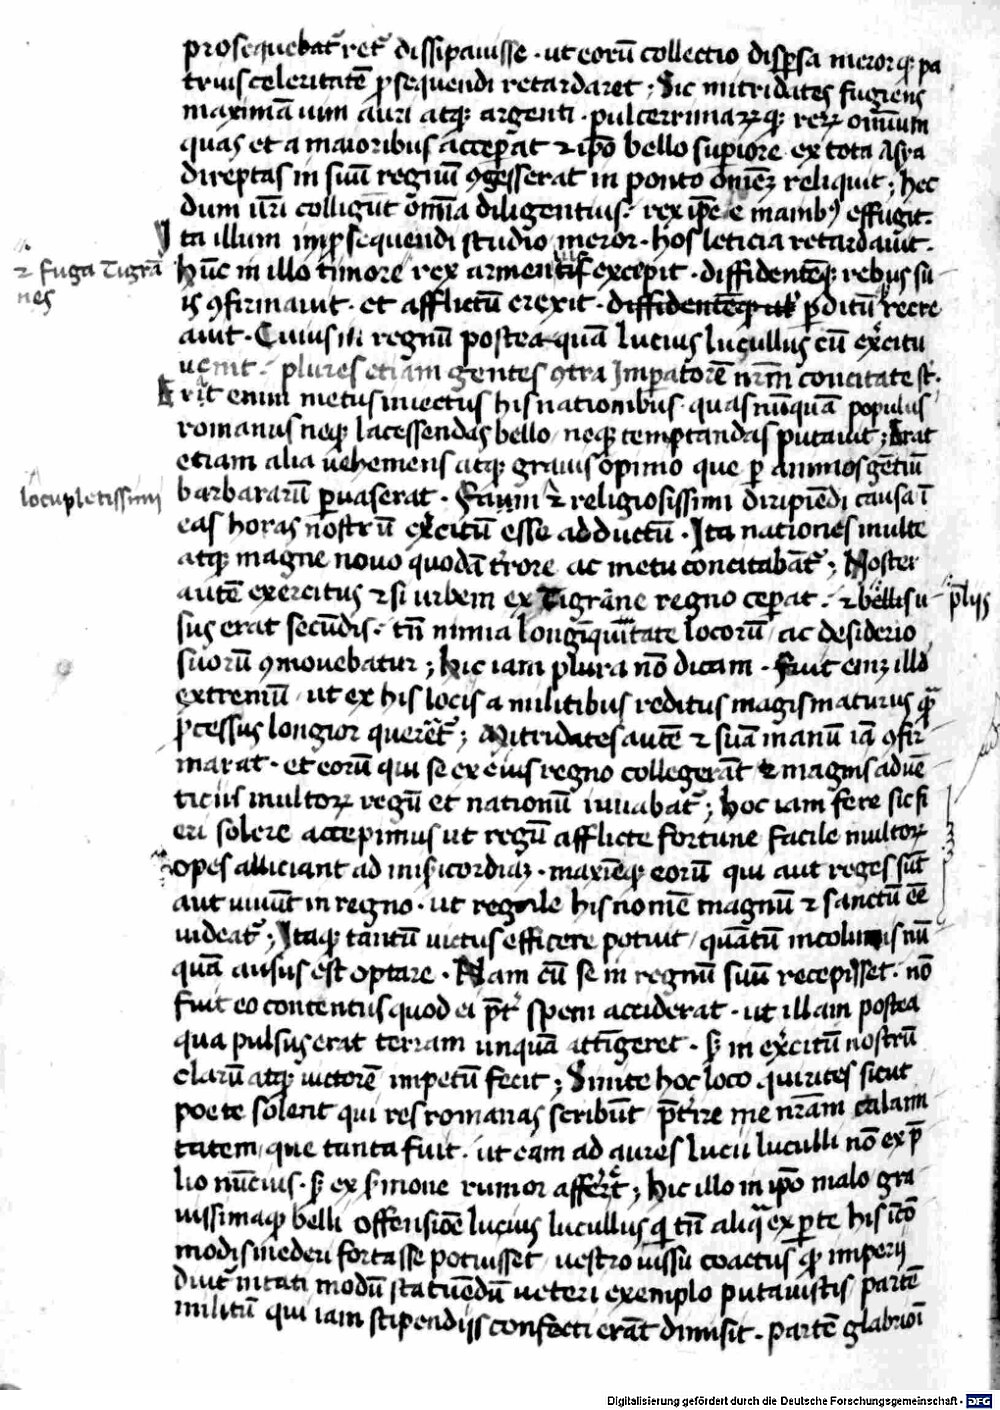 prosequebat᷑ ret᷑ dissipauisse · ut eorū collectio disꝑsa merorqꝫ pa
truis celeritatē ꝑsequendi retardaret ; Sic mitridates fugiens
maximā uim auri atqꝫ argenti · pulcerrimaꝝqꝫ reꝝ omīum
quas et a maioribus acceꝑat ⁊ ip̄o bello suꝑiore ex tota Asya
direptas in suū regnū ꝯgesserat in ponto om̄eꝫ reliquit ; hec
dum nr̄i colligūt om̄ia diligentius · rex ip̄e e manibꝰ effugit ·
Ita illum in ꝓsequendi studio meror · hos leticia retardauit ·
⁊ fuga Tigrā
nes
hūc in illo timore rex armenius excepit · diffidentēqꝫ rebus su
is ꝯfirmauit · et afflictū erexit · diffidentēqꝫ ut ꝑditū recre
auit · Cuius in regnū postea quā lucius lucullus cū ex̾citu
uenit · plures etiam gentes ꝯtra Imꝑatorē nr̄m concitate st̄ ·
Erat enim metus iniectus his nationibus quas nūquā populus
romanus neqꝫ lacessendas bello neqꝫ temptandas putauit ; Erat
etiam alia uehemens atqꝫ grauis opinio que ꝑ animos gētiū
locupletissimi
barbararū ꝑuaserat · Fani ⁊ religiosissimi diripiēdi causa ī
eas horas nostrū ex̾citū esse adductū · Ita nationes multe
atqꝫ magne nouo quodā t̾rore ac metu concitabāt᷑ ; Noster
autē exercitus ⁊ si urbem ex Tigrane regno ceꝑat · ⁊ bellis u
p̄liis
sus erat secūdis · tn̄ nimia longiquitate locorū ac desiderio
suorū ꝯmouebatur ; hic iam plura nō dicam · Fuit eniꝫ illd
extremū ut ex his locis a militibus reditus magis maturus qͣꝫ
ꝓcessus longior quereret᷑ ; Mitridates autē ⁊ suā manū iā ꝯfir
marat · et eorū qui se ex eius regno collegerāt ⁊ magnis aduē
ticiis multoꝝ regū et nationū iuuabat᷑ ; hoc iam fere sic fi
eri solere accepimus ut regū afflicte fortune facile multoꝝ
opes alliciant ad mi̅sicordiaꝫ · maximēqꝫ eorū qui aut reges sūt
aut uiuūt in regno · ut regale his nomē magnū ⁊ sanctū ēē
uideat᷑ ; Itaqꝫ tantū uictus efficere potuit quātū incolumis nū
quā ausus est optare · Nam cū se in regnū suū recepisset · nō
fuit eo contentus quod ei p̄t̾ spem acciderat · ut illam postea
qua pulsus erat terram unquā attīgeret · sꝫ in ex̾citū nostrū
clarū atqꝫ uictorē impetū fecit ; Sinite hoc loco quirites sicut
poete solent qui res romanas scribūt p̄t̾ire me nr̄am calami
tatem que tanta fuit · ut eam ad aures lucii luculli nō ex p̄
lio nūcius · sꝫ ex s̾mone rumor afferret ; hic illo in ip̄o malo gra
uissimaqꝫ belli offensiōe lucius lucullus qͥ tn̄ aliqͣ ex ꝑte his ico
modis mederi fortasse potuisset uestro iussu coactus qͥ imperij
diut᷑nitati modū statuēdū ueteri exemplo putauistis partē
militū qui iam stipendiis confecti erāt dimisit · partē glabrioī
Digitalisierung gefördert durch die Deutsche Forschungsgemeinschaft · DFG